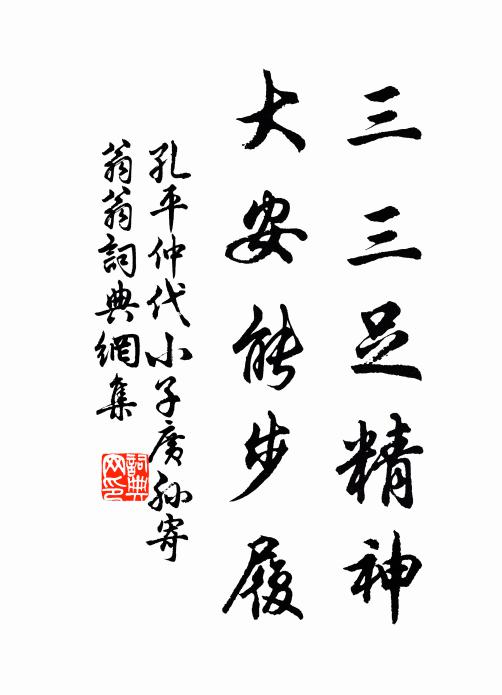 三三足精神
大安能步履
孔平仲代小子廣孫寄
翁翁詞典網集
詞典網印